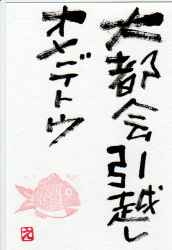 大都会引越し
オメデトウ